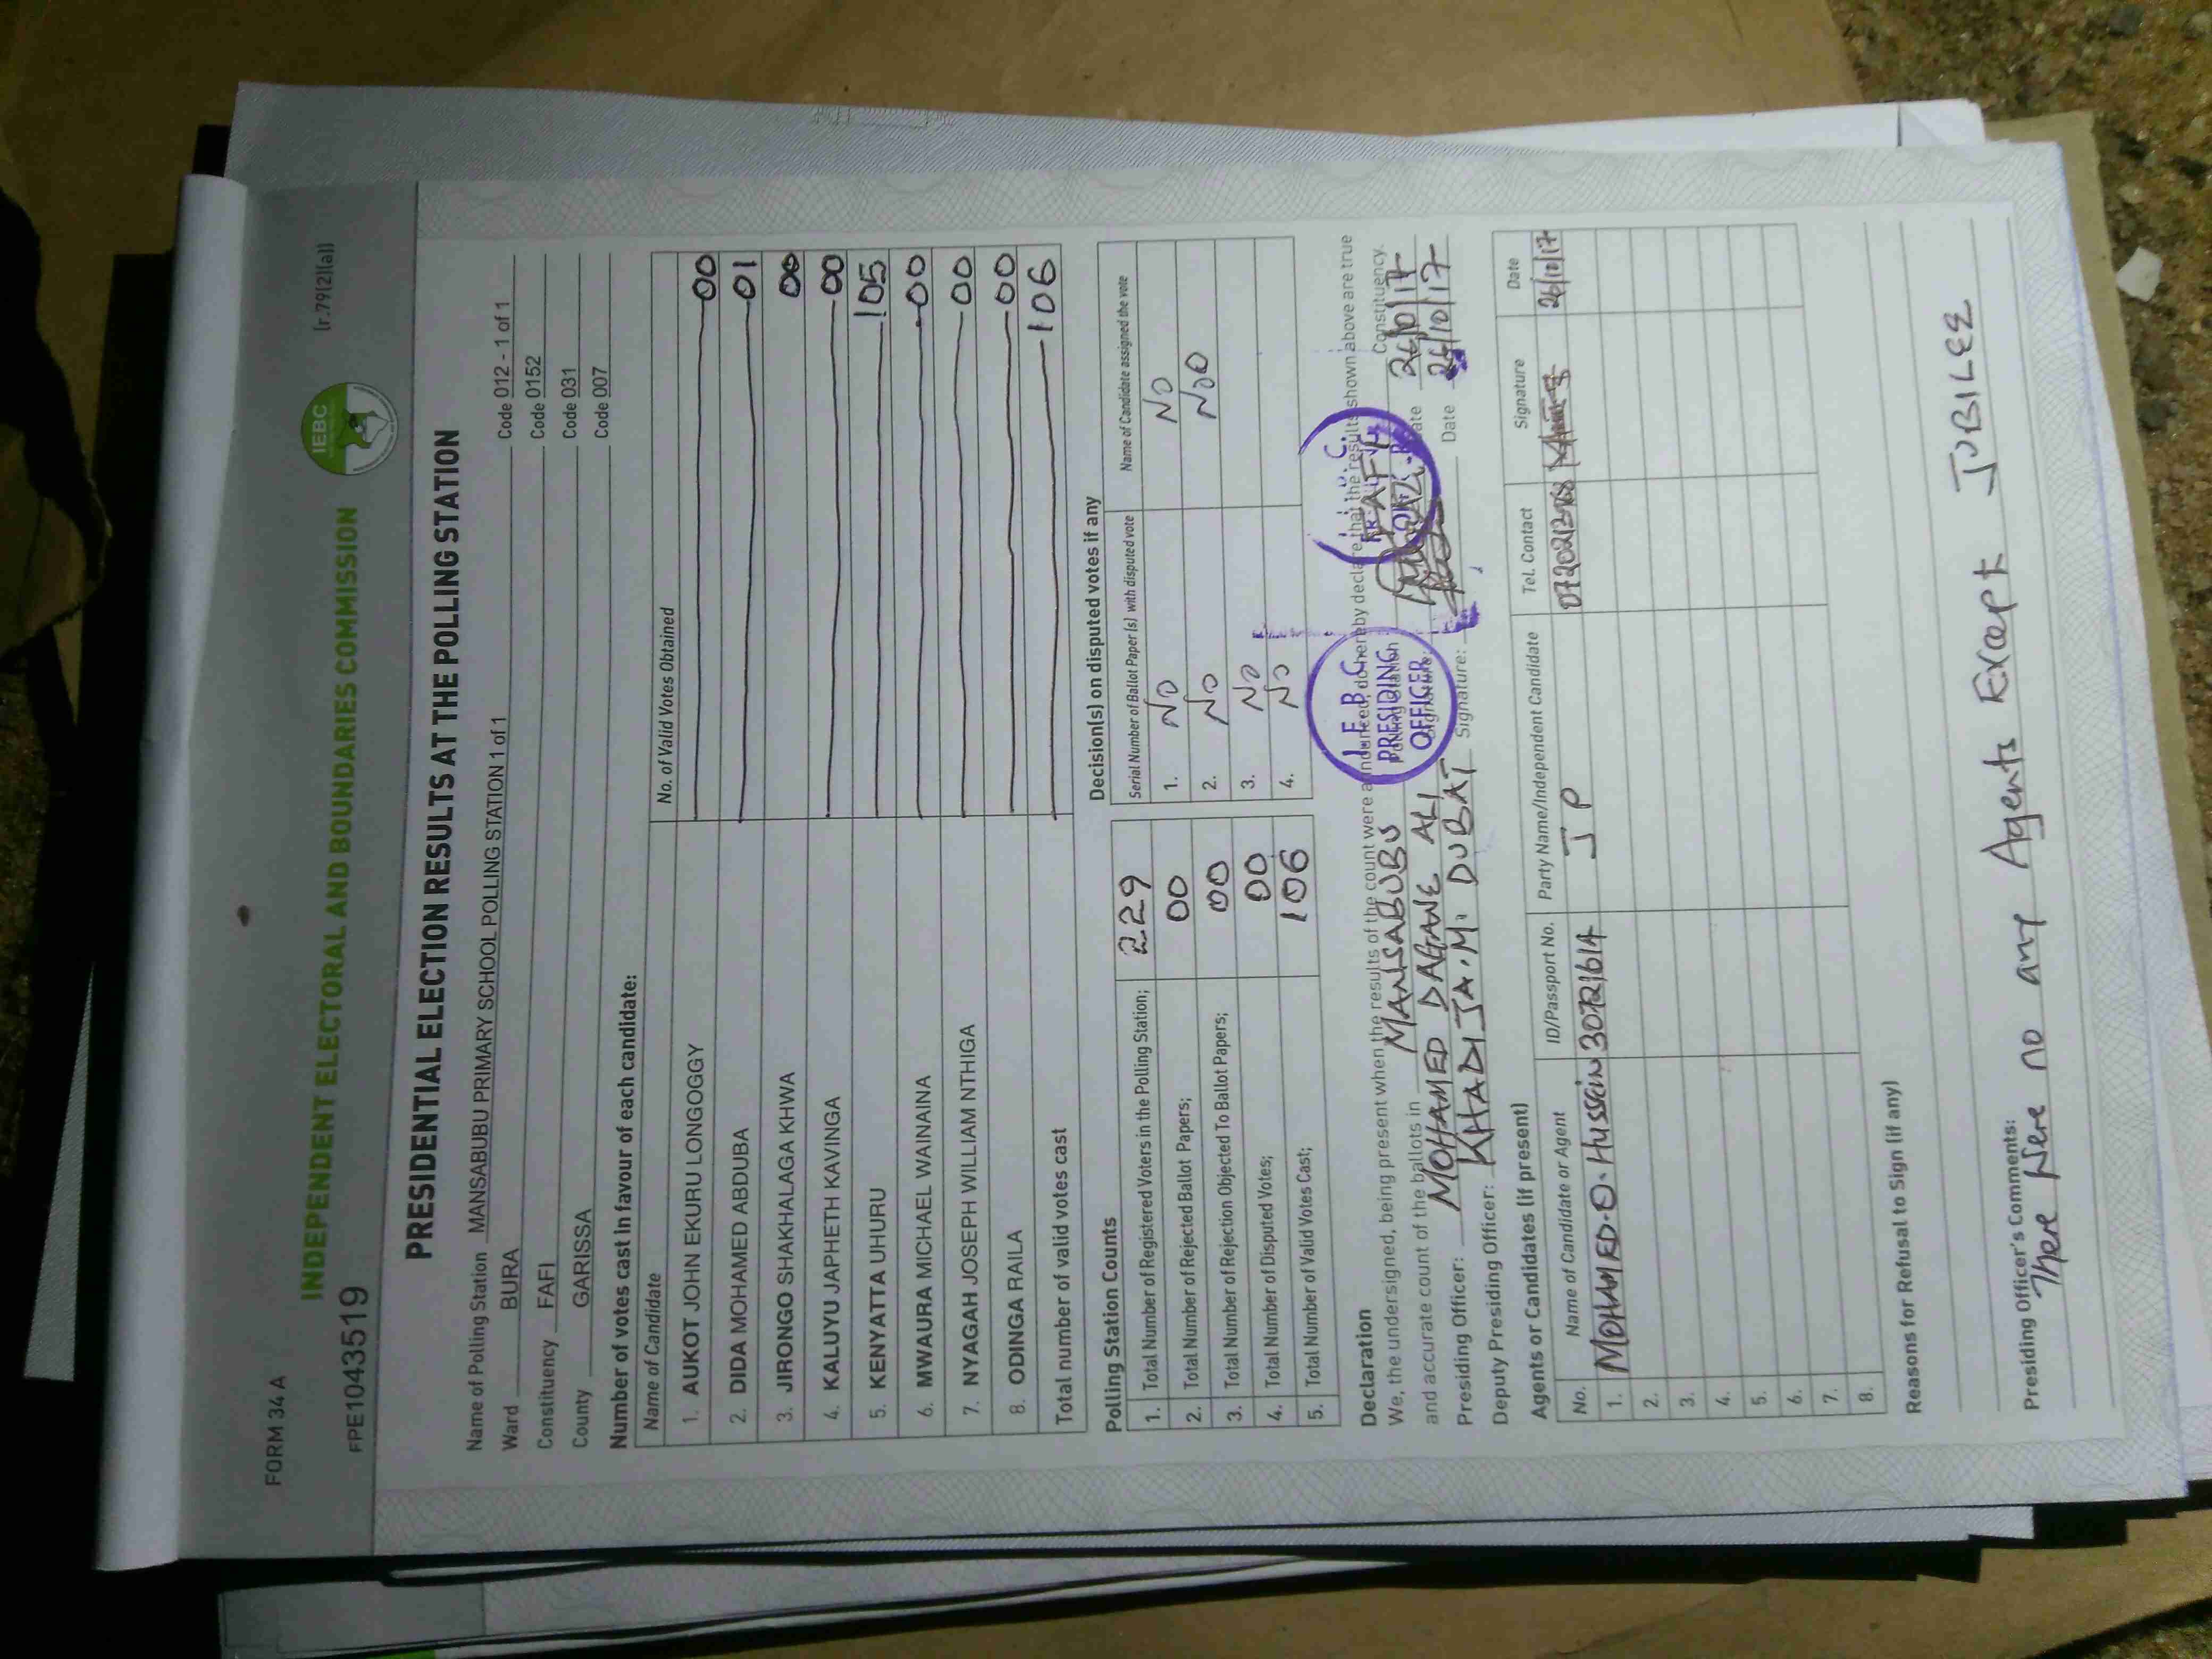 FORM 34 A
[r.79(2)(a)]
IEBC
INDEPENDENT ELECTORAL AND BOUNDARIES COMMISSION
FPE1043519
PRESIDENTIAL ELECTION RESULTS AT THE POLLING STATION
Name of Polling Station MANSABUBU PRIMARY SCHOOL POLLING STATION 1 of 1 Code 012 - 1 of 1
Ward BURA Code 0152
Constituency FAFI Code 031
County GARISSA Code 007
Number of votes cast in favour of each candidate:
Name of Candidate No. of Valid Votes Obtained
1. AUKOT JOHN EKURU LONGOGGY 00
2. DIDA MOHAMED ABDUBA 01
3. JIRONGO SHAKHALAGA KHWA 00
4. KALUYU JAPHETH KAVINGA 00
5. KENYATTA UHURU 105
6. MWAURA MICHAEL WAINAINA 00
7. NYAGAH JOSEPH WILLIAM NTHIGA 00
8. ODINGA RAILA 00
Total number of valid votes cast 106
Polling Station Counts
1. Total Number of Registered Voters in the Polling Station; 229
2. Total Number of Rejected Ballot Papers; 00
3. Total Number of Rejection Objected To Ballot Papers; 00
4. Total Number of Disputed Votes; 00
5. Total Number of Valid Votes Cast; 106
Decision(s) on disputed votes if any
Serial Number of Ballot Paper (s) with disputed vote Name of Candidate assigned the vote
1. NO NO
2. NO NOO
3. NO
4. NO
Declaration
We, the undersigned, being present when the results of the count were announced, do hereby declare that the results shown above are true
and accurate count of the ballots in MANSABUBU Polling Station FAFI Constituency.
Presiding Officer: MOHAMED DAGANE ALI Signature: Date 26/10/17
Deputy Presiding Officer: KHADIJA.M. DUBAT Signature: Date 26/10/17
I E B C
PRESIDING
OFFICER
Agents or Candidates (if present)
No. Name of Candidate or Agent ID/Passport No. Party Name/Independent Candidate Tel. Contact Signature Date
1. MOHAMED.O.Hussein JP 26/10/17
2.
3.
4.
5.
6.
7.
8.
Reasons for Refusal to Sign (if any)
Presiding Officer's Comments:
There Were no any Agents Except JUBILEE